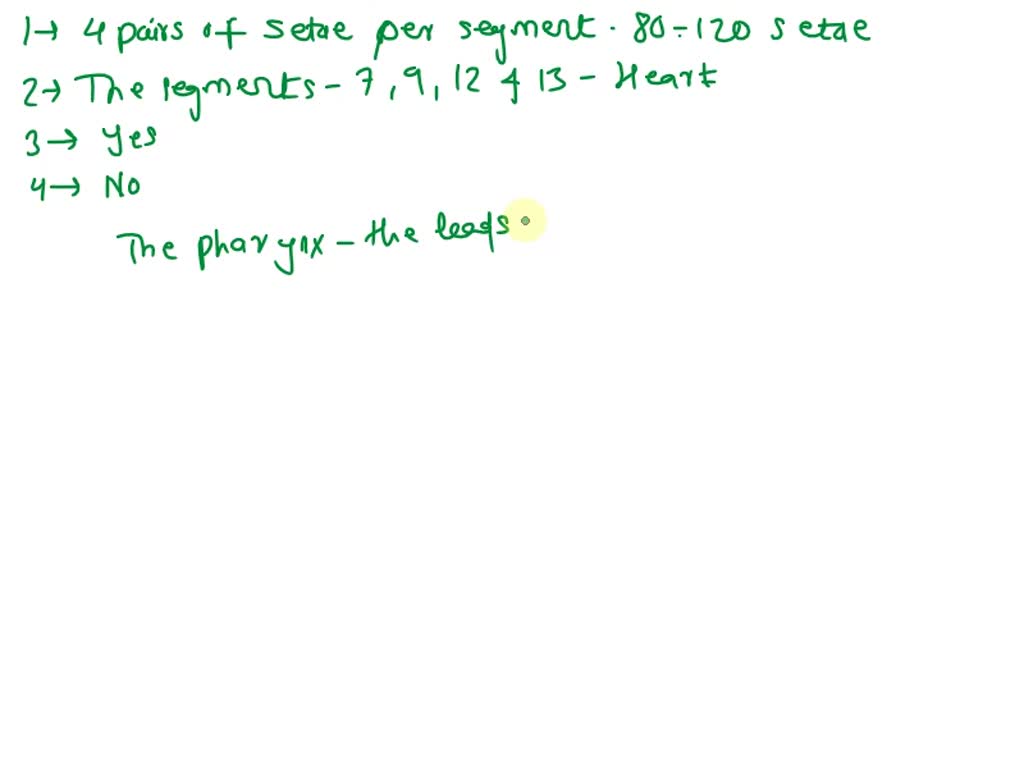 1→ 4 pairs of setae per segment. 80-120 setae
2→ The segments - 7, 9, 12 & 13 - Heart
3→ Yes
4→ No
The pharynx - the leads